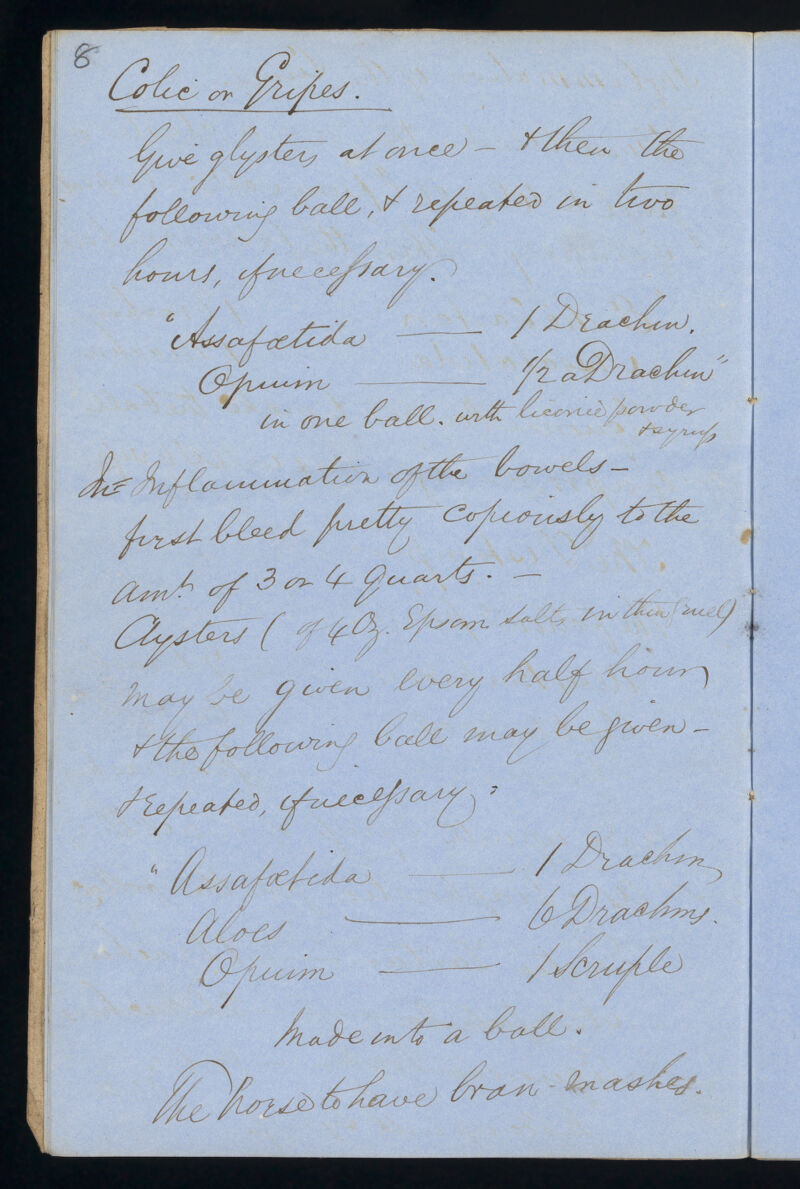 8
Colic or Gripes.
Give glysters at once – & then the
following ball, & repeated in two
hours, if necessary.
"Assafœtida —— 1 Drachm.
Opium —— 1/2 a Drachm"
in one ball. with licorice powder
& syrup
In= Inflammation of the bowels –
first bleed pretty copiously to the
amt. of 3 or 4 quarts. –
Clysters ( of 4 Oz. Epsom salts in thin gruel)
may be given every half hour
& the following ball may be given –
& repeated, if necessary :
"Assafœtida —— 1 Drachm
Aloes —— 6 Drachms.
Opium —— 1 Scruple
Made into a ball.
The horse to have bran-mashes.